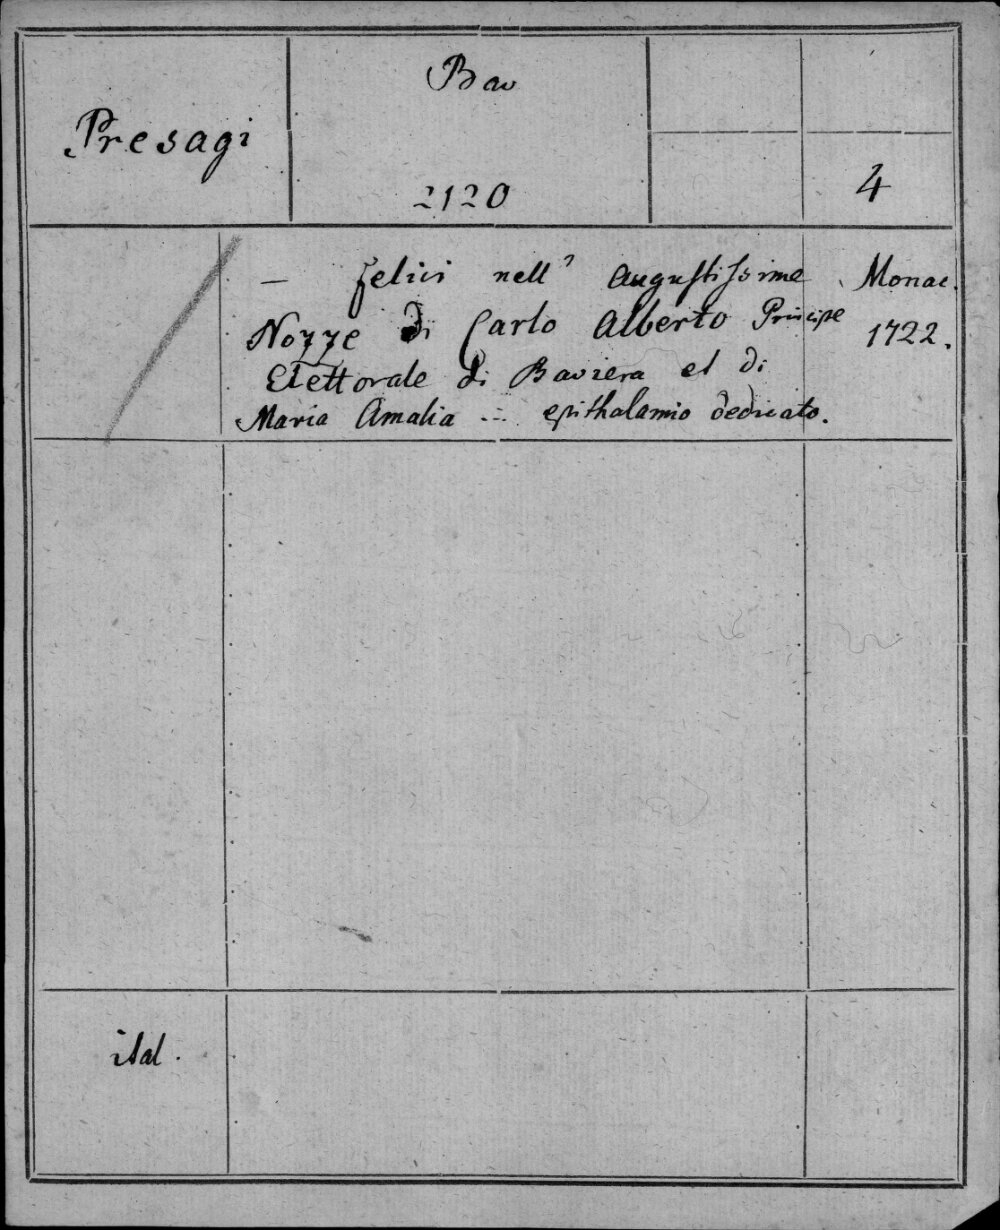 Presagi
Bav
2120
4
– felici nell' Augustissime Monac.
Nozze di Carlo Alberto Principe 1722.
Elettorale di Baviera et di
Maria Amalia ... epithalamio dedicato.
ital.